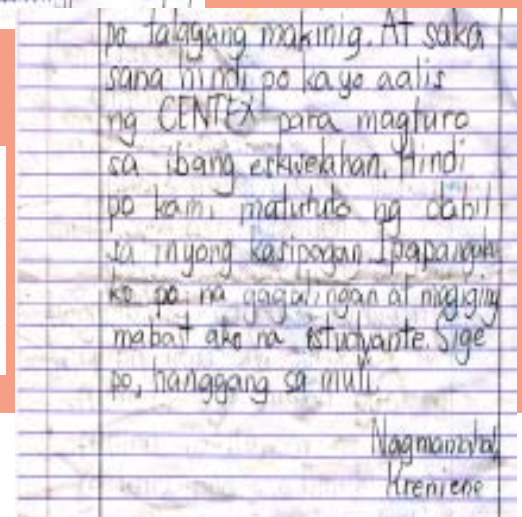 po talagang makinig. At saka
sana hindi po kayo aalis
ng CENTEX para magturo
sa ibang eskwelahan. Hindi
po kami matututo ng dahil
sa inyong kasipagan. Ipapangako
ko po na gagalingan at magiging
mabait ako na estudyante. Sige
po, hanggang sa muli.
Nagmamahal,
Kreniene